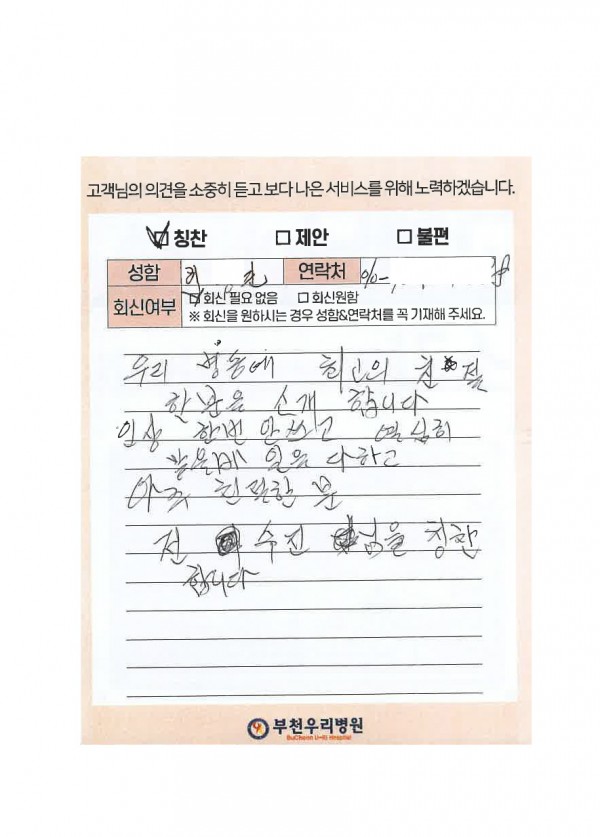 고객님의 의견을 소중히 듣고 보다 나은 서비스를 위해 노력하겠습니다.
칭찬 제안 불편
성함 연락처
회신여부 회신 필요 없음 회신원함
※ 회신을 원하시는 경우 성함&연락처를 꼭 기재해 주세요.
우리 병동에 최고의 친절
한분을 소개 합니다
인상 한번 안쓰고 열심히
맡은바 일을 다하고
아주 친절한 분
전 수진 님을 칭찬
합니다
부천우리병원
BuCheon U-Ri Hospital